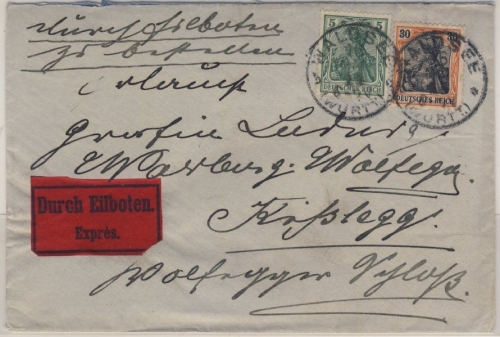 durch Eilboten
zu bestellen
5
30
DEUTSCHES REICH
DEUTSCHES REICH
WALDSEE
(WÜRTT.)
WALDSEE
(WÜRTT.)
Erlaucht
Gräfin Ludwig
Waldburg-Wolfegg
Durch Eilboten.
Exprès.
Kißlegg.
Wolfegger Schloß.